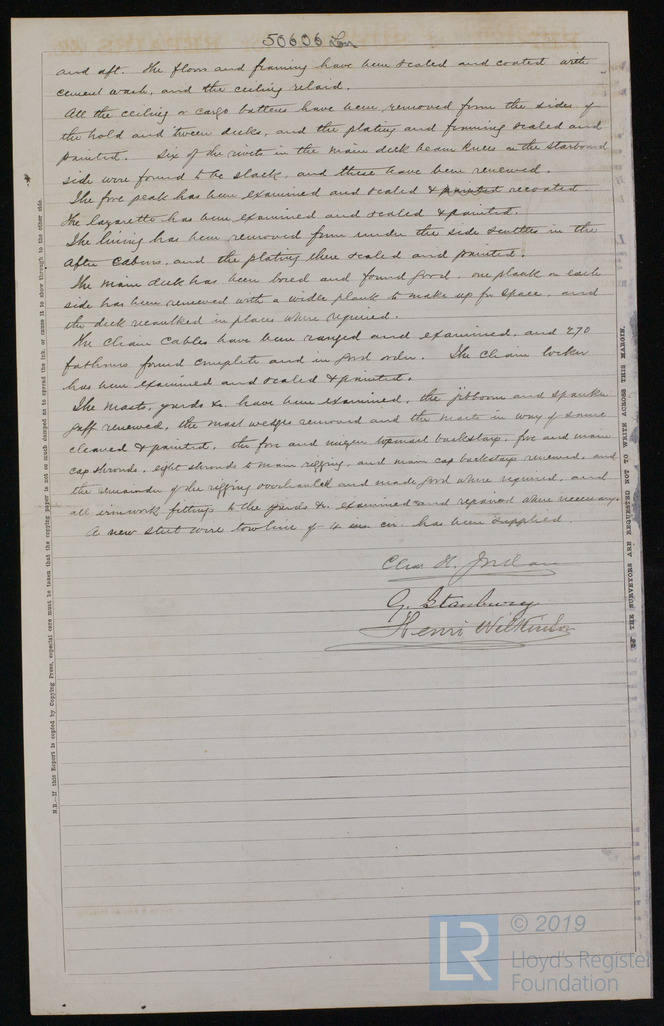 50606 Lon
and aft. The floors and framing have been scaled and coated with
cement wash, and the ceiling relaid.
All the ceiling or cargo battens have been removed from the sides of
the hold and 'tween decks, and the plating and framing scaled and
painted. Six of the rivets in the main deck beam knees on the starboard
side were found to be slack, and these have been renewed.
The fore peak has been examined and scaled & painted recoated
The lazarette has been examined and scaled & painted.
The lining has been removed from under the side scuttles in the
after cabins, and the plating there scaled and painted.
The main deck has been bored and found good, one plank on each
side has been renewed with a wider plank to make up for space, and
the deck recaulked in places where required.
The chain cables have been ranged and examined, and 270
fathoms found complete and in good order. The chain locker
has been examined and scaled & painted.
The masts, yards &c. have been examined, the jibboom and spanker
gaff renewed, the mast wedges removed and the masts in way of same
cleaned & painted, the fore and mizen topmast backstays, fore and main
cap shrouds, eight shrouds to main rigging, and main cap backstays renewed, and
the remainder of the rigging overhauled and made good where required, and
all ironwork fittings to the yards &c. examined and repaired where necessary.
A new steel wire towline of 4 ins cir. has been supplied.
Chas H. Jordan
G. Stanbury
Henri Wilkinson
N.B.—If this Report is copied by Copying Press, especial care must be taken that the copying paper is not so much damped as to spread the ink, or cause it to show through to the other side.
THE SURVEYORS ARE REQUESTED NOT TO WRITE ACROSS THIS MARGIN.
LR
© 2019
Lloyd's Register
Foundation